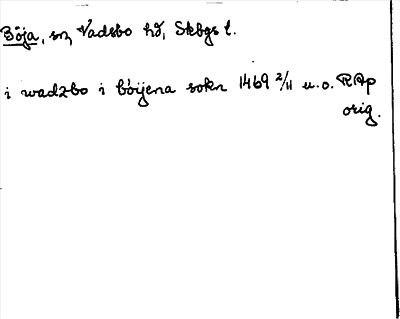 Böja, sn, Vadsbo hd, Skbgs l.
i wadzbo i böijena sokn 1469 2/11 u.o. RAp
orig.